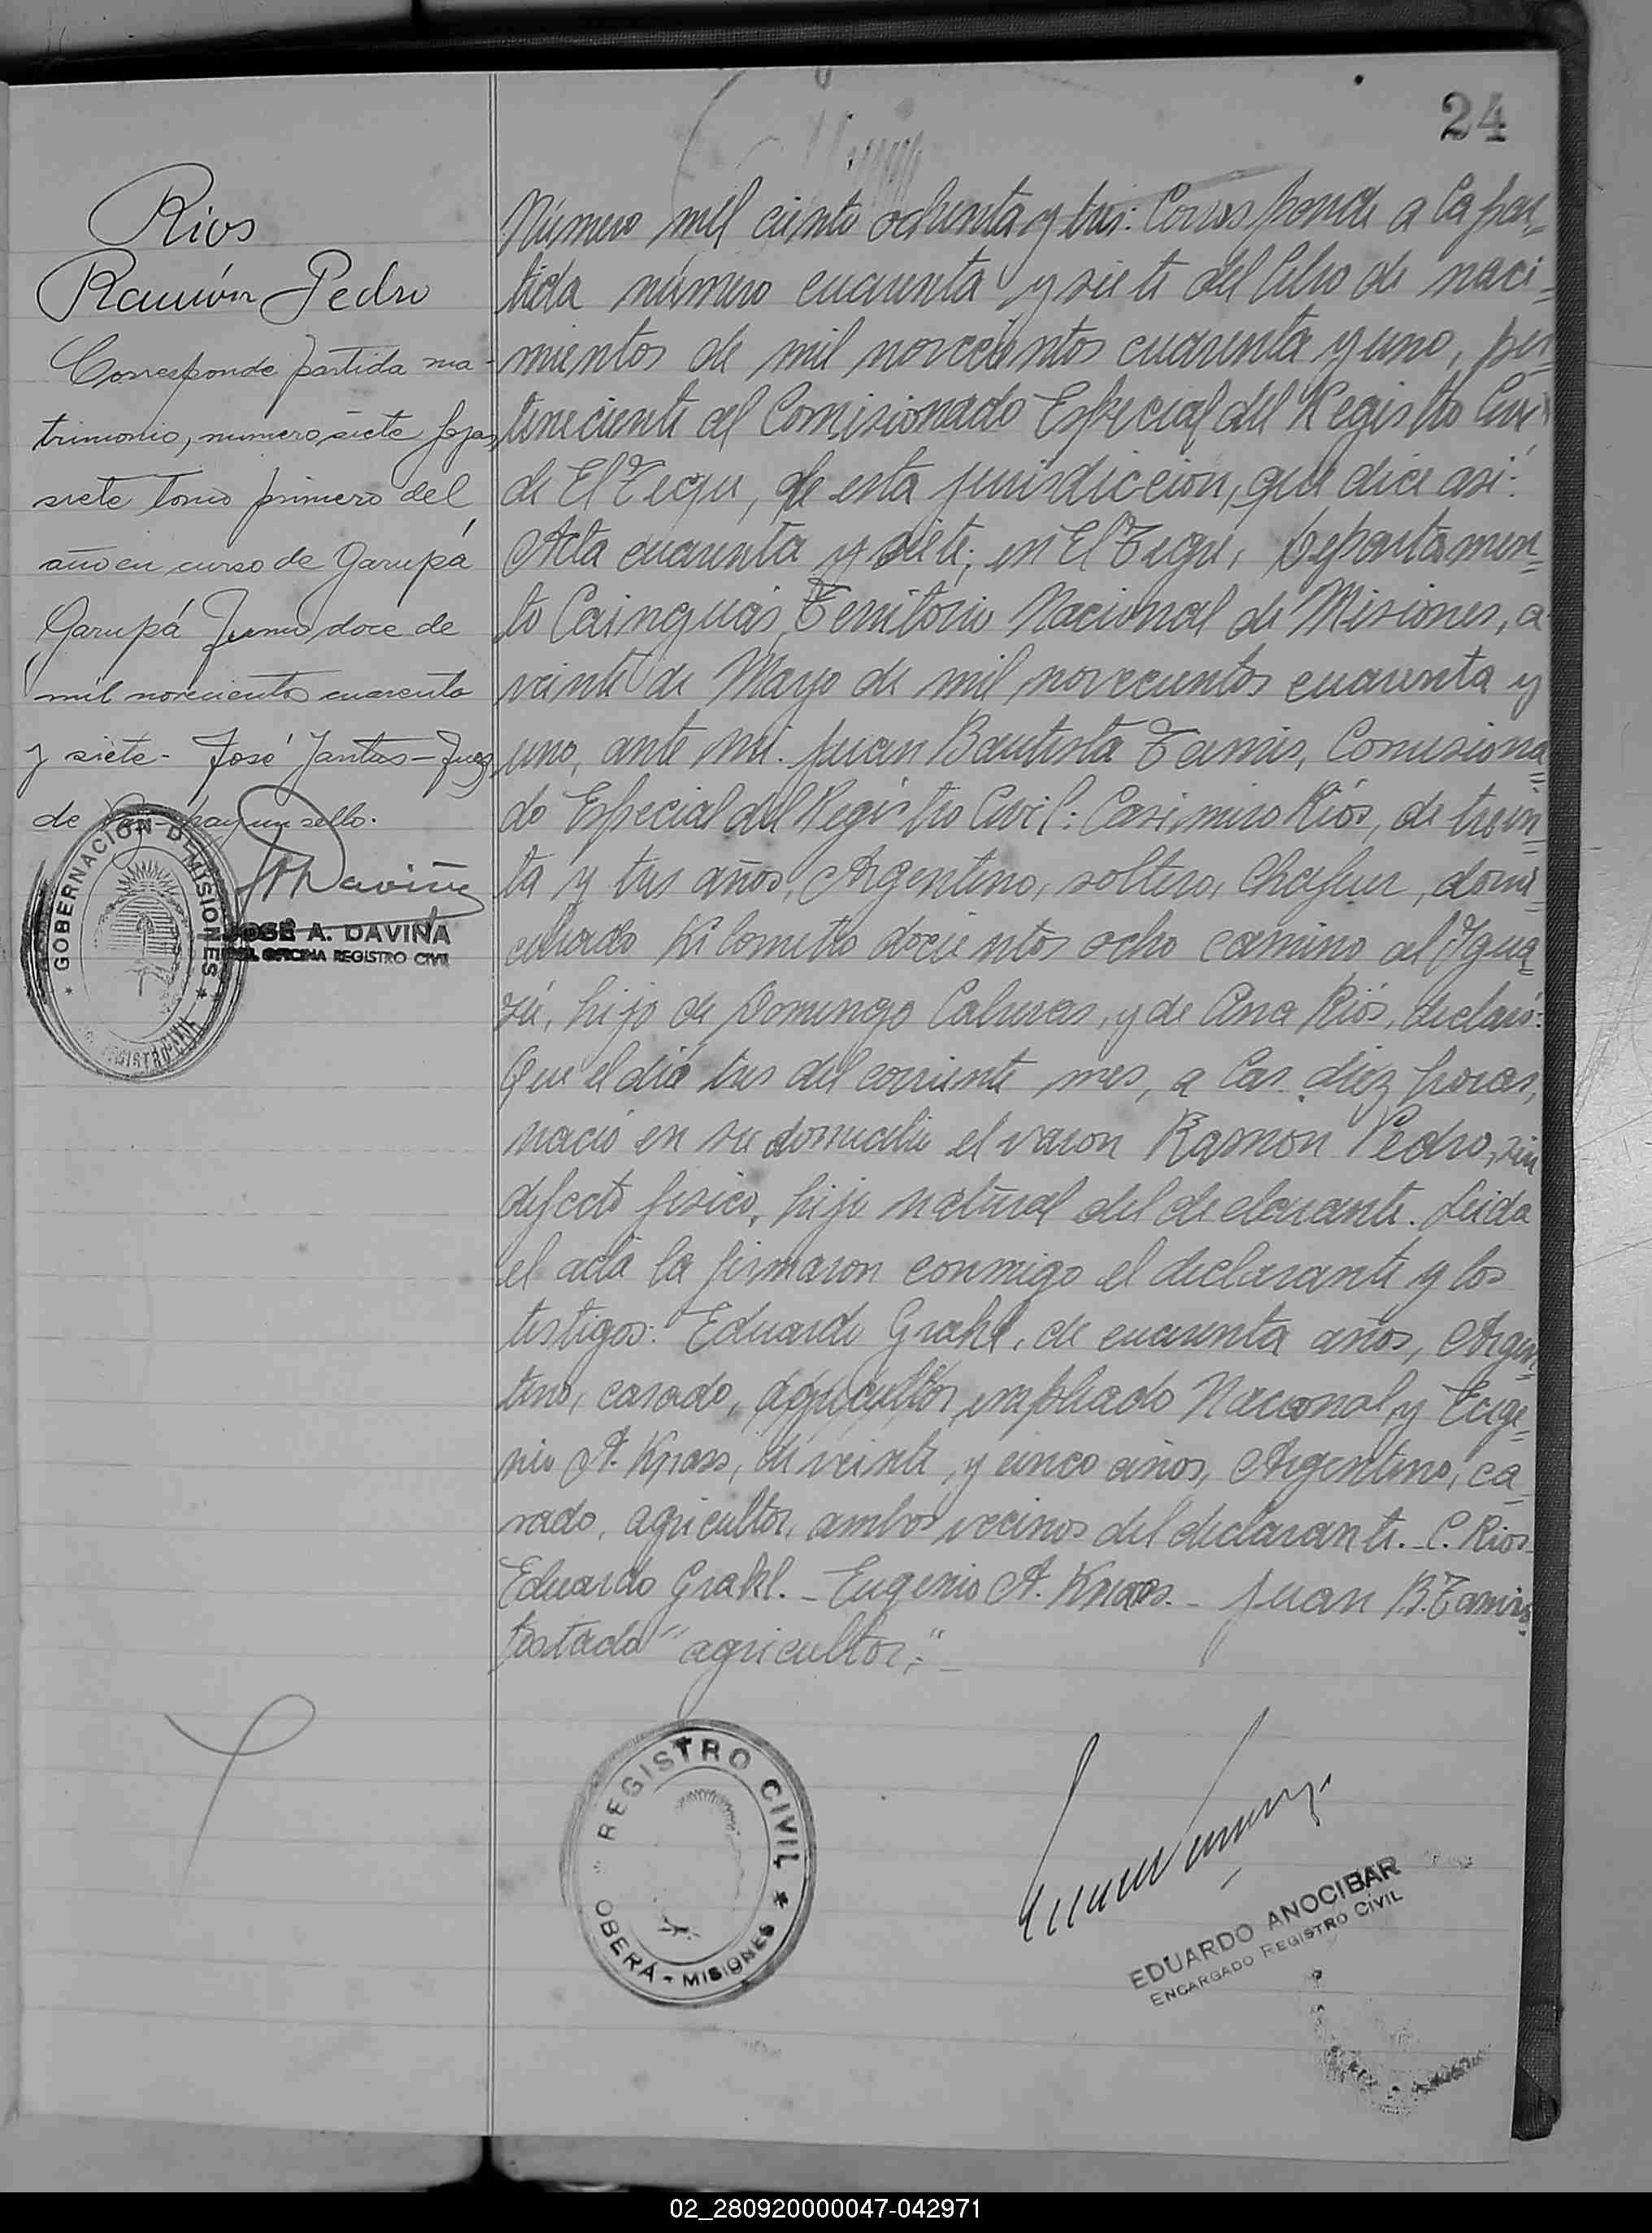 24
Rios
Ramón Pedro
Corresponde partida ma-
trimonio, numero siete fojas
siete tomo primero del
año en curso de Garupá
Garupá Junio doce de
mil novecientos cuarenta
y siete - José Santos - Juez
de Paz - hay un sello.
GOBERNACIÓN D MISIONES
REGISTRO CIVIL
JOSÉ A. DAVIÑA
OFICINA REGISTRO CIVIL
Número mil ciento ochenta y tres: Corresponde a la par-
tida número cuarenta y siete del libro de naci-
mientos de mil novecientos cuarenta y uno, per-
teneciente al Comisionado Especial del Registro Civil
de El Tegu, de esta jurisdiccion, que dice asi:
Acta cuarenta y siete; en El Tegu, Departamen-
to Cainguás, Territorio Nacional de Misiones, a
veinte de Mayo de mil novecientos cuarenta y
uno, ante mi. Juan Bautista Tamis, Comisiona-
do Especial del Registro Civil: Casimiro Rios, de trein-
ta y tres años, Argentino, soltero, Chofeur, domi-
ciliado Kilometro docientos ocho camino al Igua-
zú, hijo de Domingo, y de Ana Rios, declaró:
Que el dia tres del corriente mes, a las diez horas,
nació en su domicilio el varon Ramon Pedro, sin
defecto fisico, hijo natural del declarante. Leida
el acta la firmaron conmigo el declarante y los
testigos: Eduardo Grahl, de cuarenta años, Argen-
tino, casado, agricultor, empleado Nacional y Euge-
nio A. Knaas, de veinte y cinco años, Argentino, ca-
sado, agricultor, ambos vecinos del declarante. - C. Rios
Eduardo Grahl. - Eugenio A. Knaas. - Juan B. Tamis
Testado "agricultor," -
REGISTRO CIVIL
OBERÁ - MISIONES
EDUARDO ANOCIBAR
ENCARGADO REGISTRO CIVIL
02_280920000047-042971